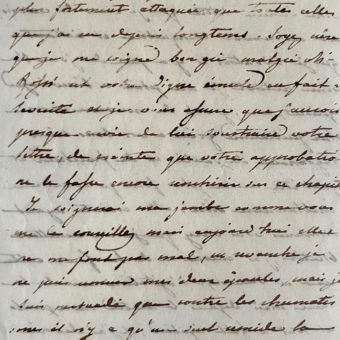 plus fortement attaquée que toutes celles
que j'ai eu depuis longtems. Soyez sûre
que je me soigne bien malgré
et votre digne émule en fait
et je vous assure que j'aurois
presque envie de lui soustraire votre
lettre, de crainte que votre approbation
ne le fasse encore renchérir sur ce chapit
Je soignerai ma jambe comme vous
me le conseillez mais aujourd'hui elle
ne me fait pas mal, en revanche je
ne puis remuer mes deux épaules, mais je
suis persuadé que contre les rhumatis
mes il n'y a qu'un seul remède la